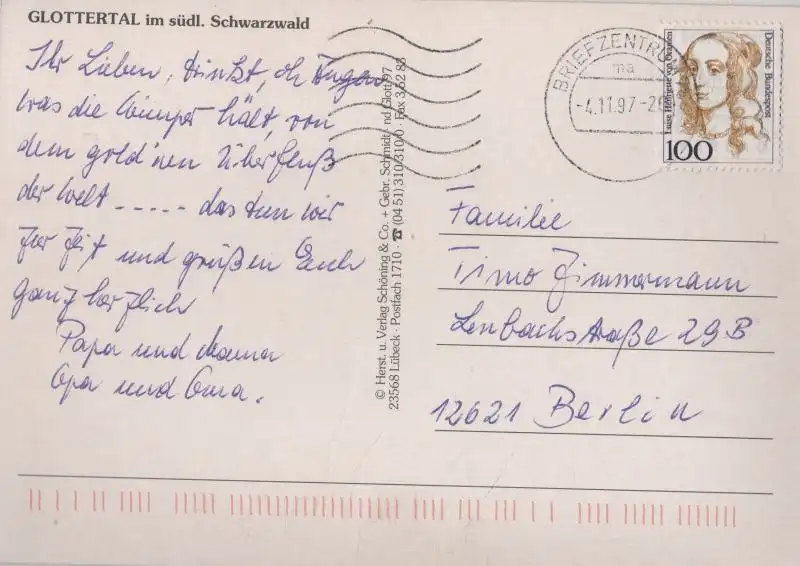 GLOTTERTAL im südl. Schwarzwald
Ihr Lieben, trinkt, oh Augen
was die Wimper hält, von
dem gold'nen Überfluß
der Welt ----- das tun wir
zur Zeit und grüßen Euch
ganz herzlich
Papa und Mama
Opa und Oma.
© Herst. u. Verlag Schöning & Co. + Gebr. Schmidt · nd Glott/97
23568 Lübeck · Postfach 1710 · ☎ (04 51) 310/310/0 · Fax 3 52 83
BRIEFZENTRUM
ma
-4.11.97-2
Deutsche Bundespost
Luise Henriette von Oranien
100
Familie
Timo Zimmermann
Lenbachstraße 29B
12621 Berlin